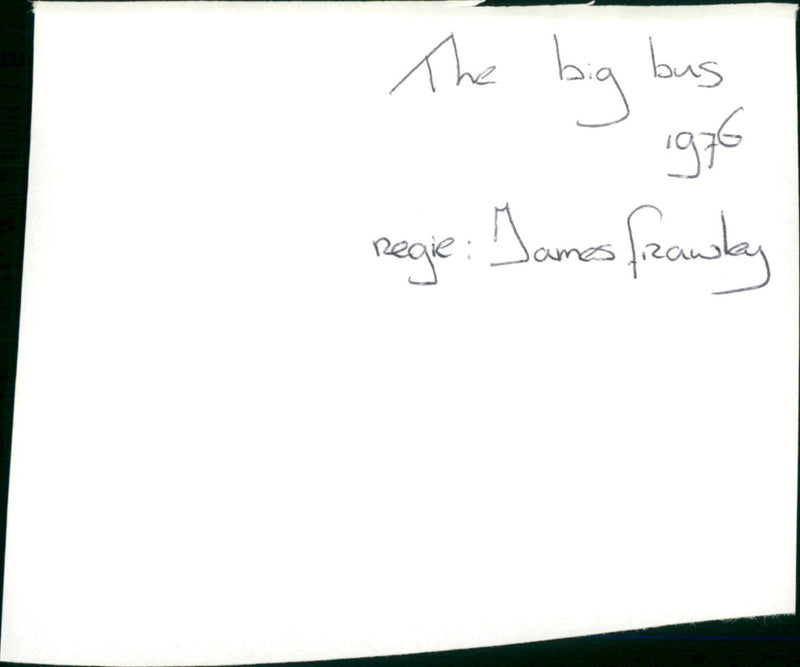 The big bus
1976
regie: James Frawley